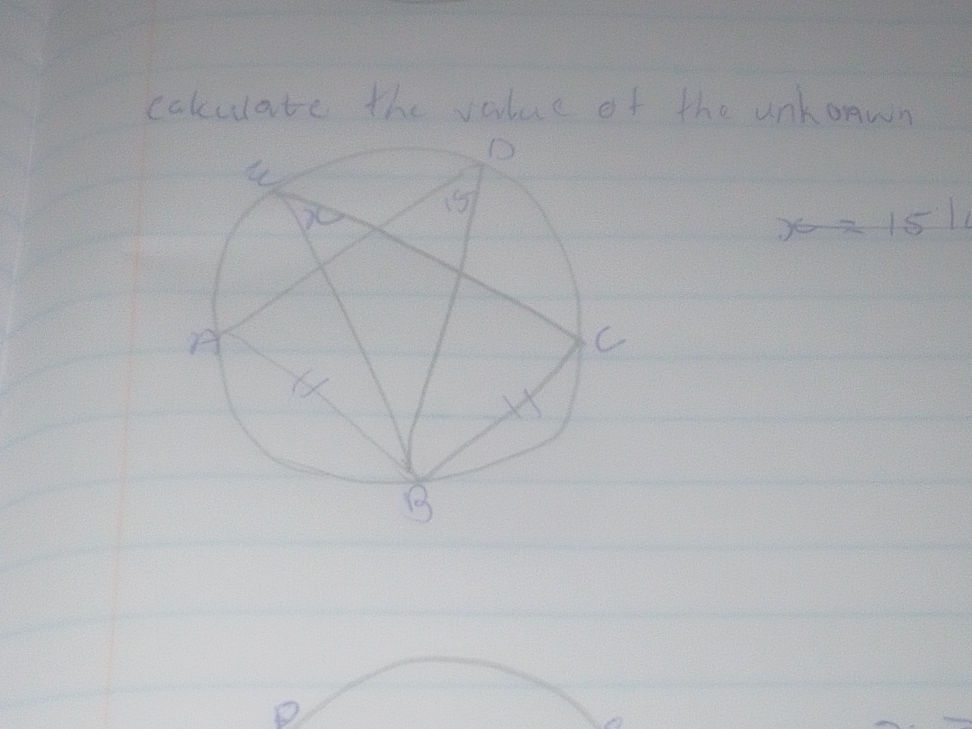 calculate the value of the unknown
D
x
15
x = 15
A
C
B
P